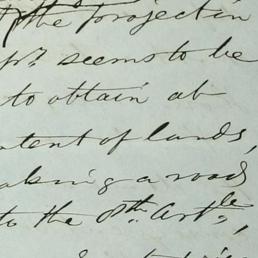 the project in
seems to be
to obtain at
tent of lands,
aking a road
to the 8th Artle,